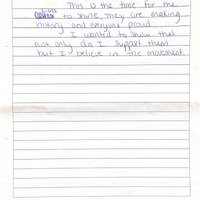 This is the time for the
Lions to shine, they are making
history and everyone proud.
I wanted to show that
not only do I support them
but I believe in the movement.